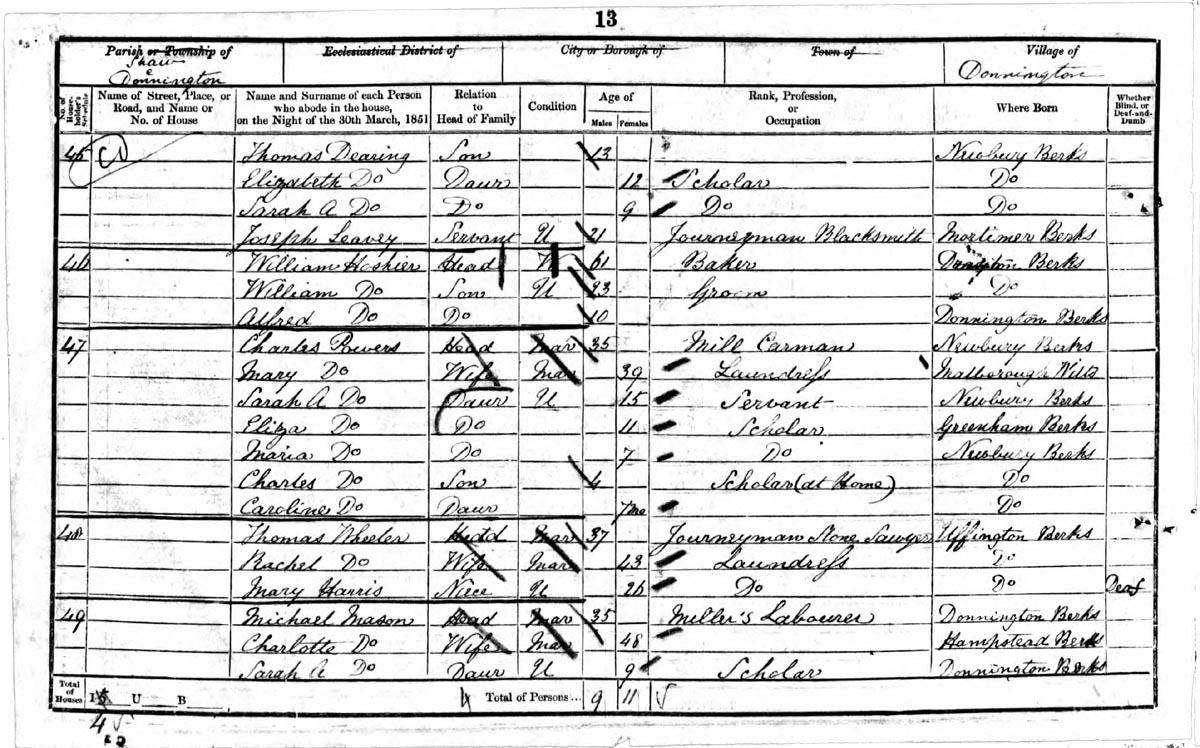 13
Parish or Township of Ecclesiastical District of City or Borough of Town of Village of
Shaw
Donnington Donnington
No. of House-holder's Schedule Name of Street, Place, or Road, and Name or No. of House Name and Surname of each Person who abode in the house, on the Night of the 30th March, 1851 Relation to Head of Family Condition Age of Males Females Rank, Profession, or Occupation Where Born Whether Blind, or Deaf-and-Dumb
45 Thomas Dearing Son 13 Newbury Berks
Elizabeth Do Daur 12 Scholar Do
Sarah A Do Do 9 Do Do
Joseph Leavey Servant U 21 Journeyman Blacksmith Mortimer Berks
46 William Hoskier Head W 61 Baker Berks
William Do Son U 23 Groom Do
Alfred Do Do 10 Donnington Berks
47 Charles Powers Head Mar 35 Mill Carman Newbury Berks
Mary Do Wife Mar 39 Laundress Malborough Wilts
Sarah A Do Daur U 15 Servant Newbury Berks
Eliza Do Do 11 Scholar Greenham Berks
Maria Do Do 7 Do Newbury Berks
Charles Do Son 4 Scholar (at Home) Do
Caroline Do Daur 7mo Do
48 Thomas Wheeler Head Mar 37 Journeyman Stone Sawyer Uffington Berks
Rachel Do Wife Mar 43 Laundress Do
Mary Harris Niece U 26 Do Do Deaf
49 Michael Mason Head Mar 35 Miller's Labourer Donnington Berks
Charlotte Do Wife Mar 48 Hampstead Berks
Sarah A Do Daur U 9 Scholar Donnington Berks
Total of Houses I U B 4 Total of Persons... 9 11
4